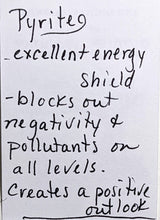 Pyrite
-excellent energy
shield
-blocks out
negativity &
pollutants on
all levels.
Creates a positive
outlook